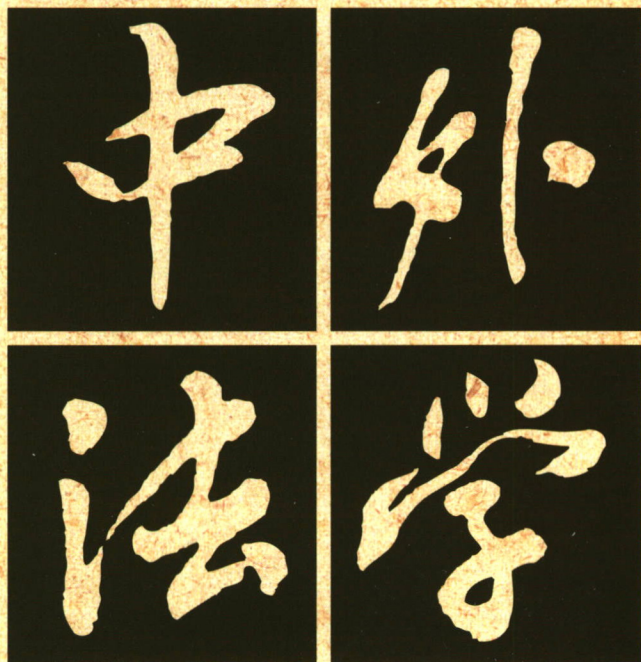 中外
法学